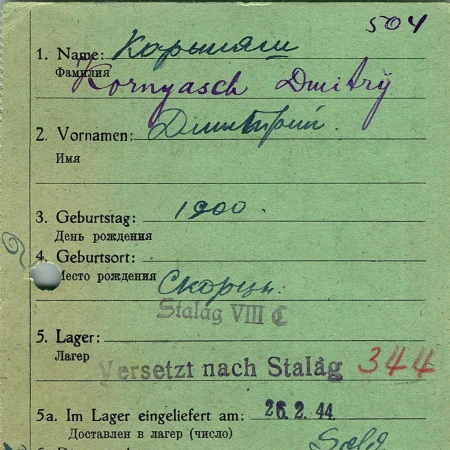 504
1. Name:
Фамилия
Kornyasch Dmitrÿ
2. Vornamen: Дмитрий.
Имя
3. Geburtstag: 1900.
День рождения
4. Geburtsort:
Место рождения Скорцы.
Stalag VIII C
5. Lager:
Лагерь
Versetzt nach Stalag 344
5a. Im Lager eingeliefert am: 26.2.44.
Доставлен в лагерь (число)